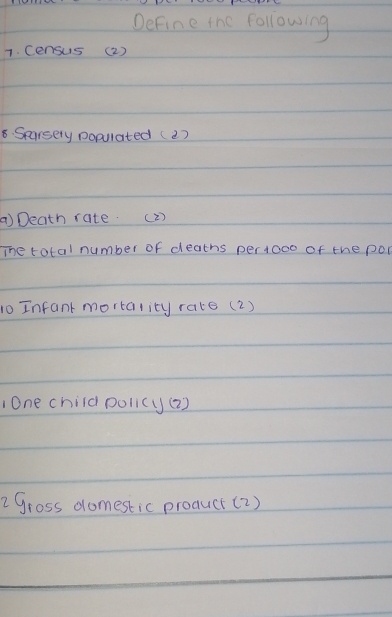 Define the following
7. Census (2)
8. Sparsely populated (2)
9) Death rate. (2)
The total number of deaths per 1000 of the
10 Infant mortality rate (2)
One child policy (2)
2 Gross domestic product (2)